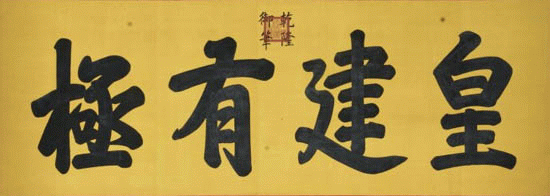 皇建有極
乾隆
御筆